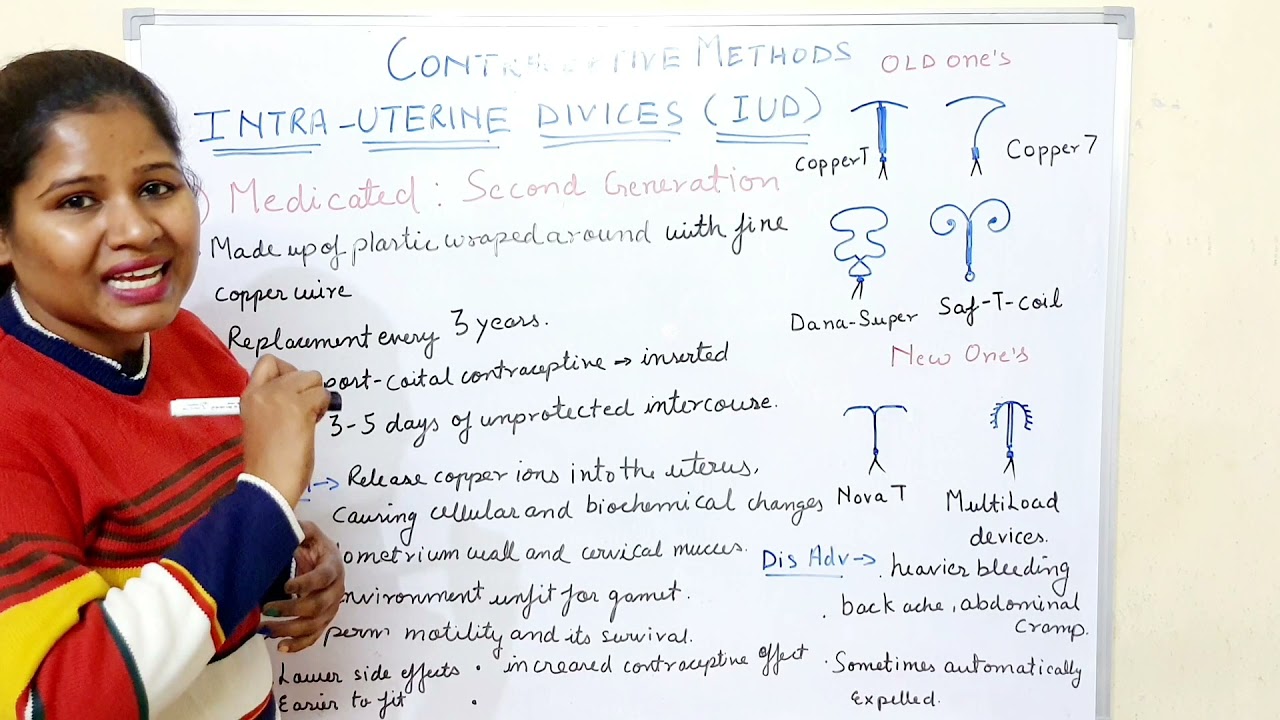 CONTRACEPTIVE METHODS
INTRA-UTERINE DIVICES (IUD)
) Medicated : Second Generation
Made up of plastic wraped around with fine
copper wire
Replacement every 3 years.
post-coital contraceptine → inserted
3-5 days of unprotected intercouse.
→ Release copper ions into the uterus,
causing cellular and biochemical changes
ometrium wall and cervical mucus.
nvironment unfit for gamet.
perm motility and its survival.
Lower side effects • increared contraceptine effect
Easier to fit •
OLD One's
Copper T
Copper 7
Dana-Super
Saf-T-coil
New One's
Nova T
MultiLoad
devices.
Dis Adv → . heavier bleeding
. back ache, abdominal
cramp.
. Sometimes automatically
expelled.